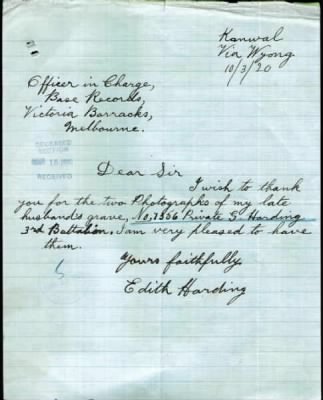 Kanwal
Via Wyong
10/3/20
Officer in Charge,
Base Records,
Victoria Barracks,
Melbourne.
DECEASED
SECTION
RECEIVED
Dear Sir
I wish to thank
you for the two Photographs of my late
husband's grave, No, 7356 Private G. Harding
3rd Battalion, I am very pleased to have
them.
Yours faithfully
Edith Harding